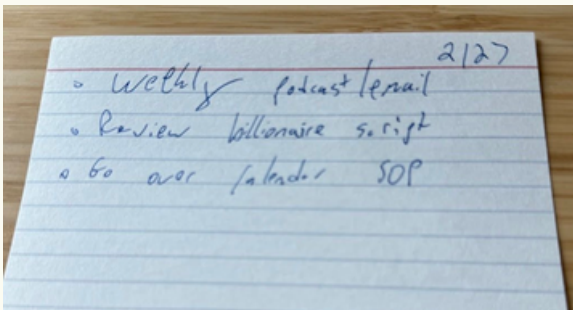 2/27
◦ Weekly podcast/email
◦ Review billionaire script
◦ Go over calendar SOP